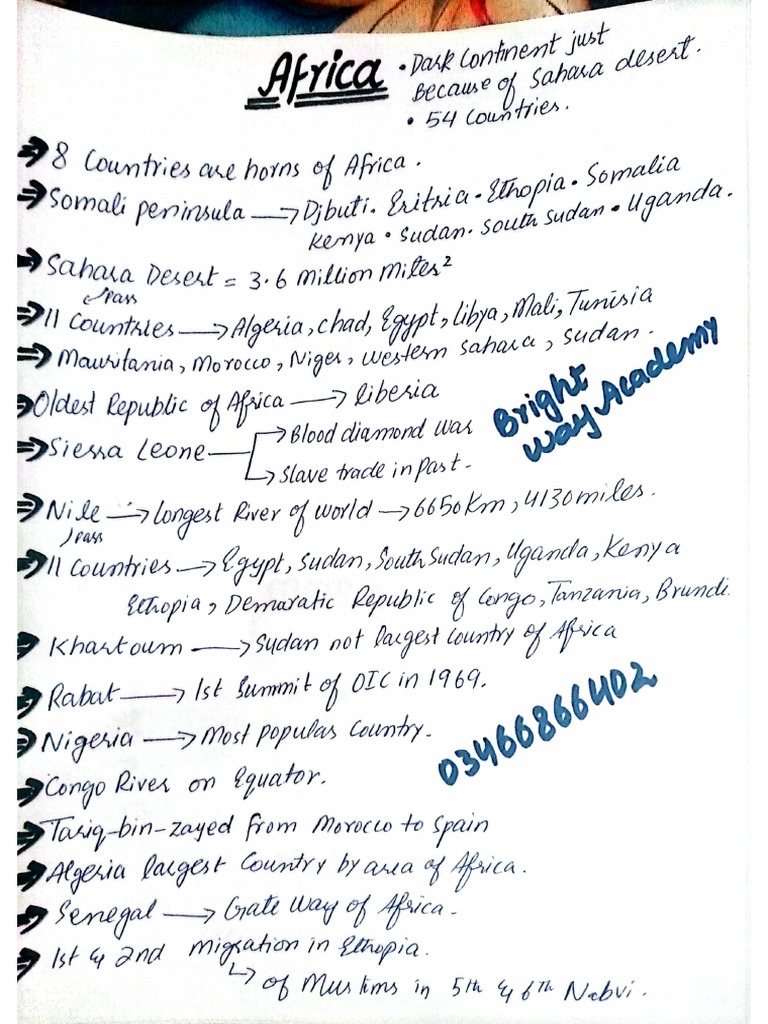 Africa
• Dark Continent just
Because of Sahara desert.
• 54 Countries.
⇒ 8 Countries are horns of Africa.
⇒ Somali peninsula → Djbuti. Eritria • Ethopia • Somalia
Kenya • Sudan. South Sudan • Uganda.
⇒ Sahara Desert = 3.6 Million Miles²
↙ Pass
⇒ 11 Countries → Algeria, Chad, Egypt, Libya, Mali, Tunisia
⇒ Mauritania, Morocco, Niger, Western Sahara, Sudan.
⇒ Oldest Republic of Africa → Liberia
⇒ Sierra Leone → Blood diamond war
→ Slave trade in Past.
Bright
Way Academy
⇒ Nile → Longest River of world → 6650Km, 4130miles.
↙ Pass
⇒ 11 Countries → Egypt, Sudan, South Sudan, Uganda, Kenya
Ethopia, Demaratic Republic of Congo, Tanzania, Brundi.
⇒ Khartoum → Sudan not largest Country of Africa
⇒ Rabat → 1st Summit of OIC in 1969.
⇒ Nigeria → Most popular Country.
03466866402
⇒ Congo River on Equator.
⇒ Tariq-bin-zayed from Morocco to Spain
⇒ Algeria largest Country by area of Africa.
⇒ Senegal → Gate Way of Africa.
⇒ 1st & 2nd Migration in Ethopia.
↳ of Muslims in 5th & 6th Nabvi.